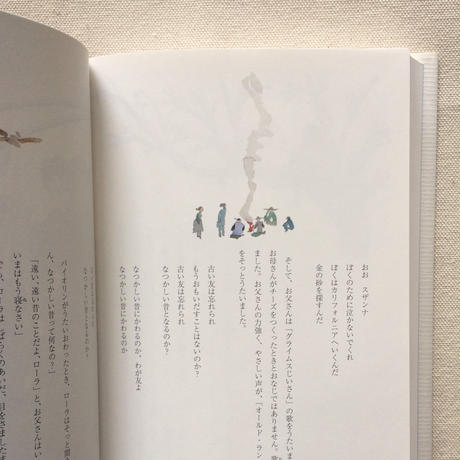 おお スザンナ
ぼくのために泣かないでくれ
ぼくはカリフォルニアへいくんだ
金の砂を探すんだ
そして、お父さんは「グライムスじいさん」の歌をうたいま
お母さんがチーズをつくったときとおなじではありません。歌
ました。お父さんの力強く、やさしい声が、「オールド・ラン
をそっとうたいました。
古い友は忘れられ
もうおもいだすことはないのか?
古い友は忘れられ
なつかしい昔となるのか?
なつかしい昔にかわるのか、わが友よ
なつかしい昔にかわるのか
なつかしい昔にかわるのか?
バイオリンがうたいおわったとき、ローラはそっと聞
ん、なつかしい昔って何なの?」
「遠い、遠い昔のことだよ、ローラ」と、お父さんはい
いまはもう寝なさい」
ローラはしばらくのあいだ、目をさました